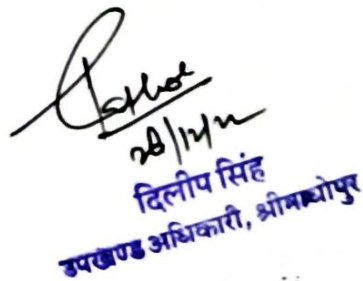 28/12/22
दिलीप सिंह
उपखण्ड अधिकारी, श्रीमाधोपुर